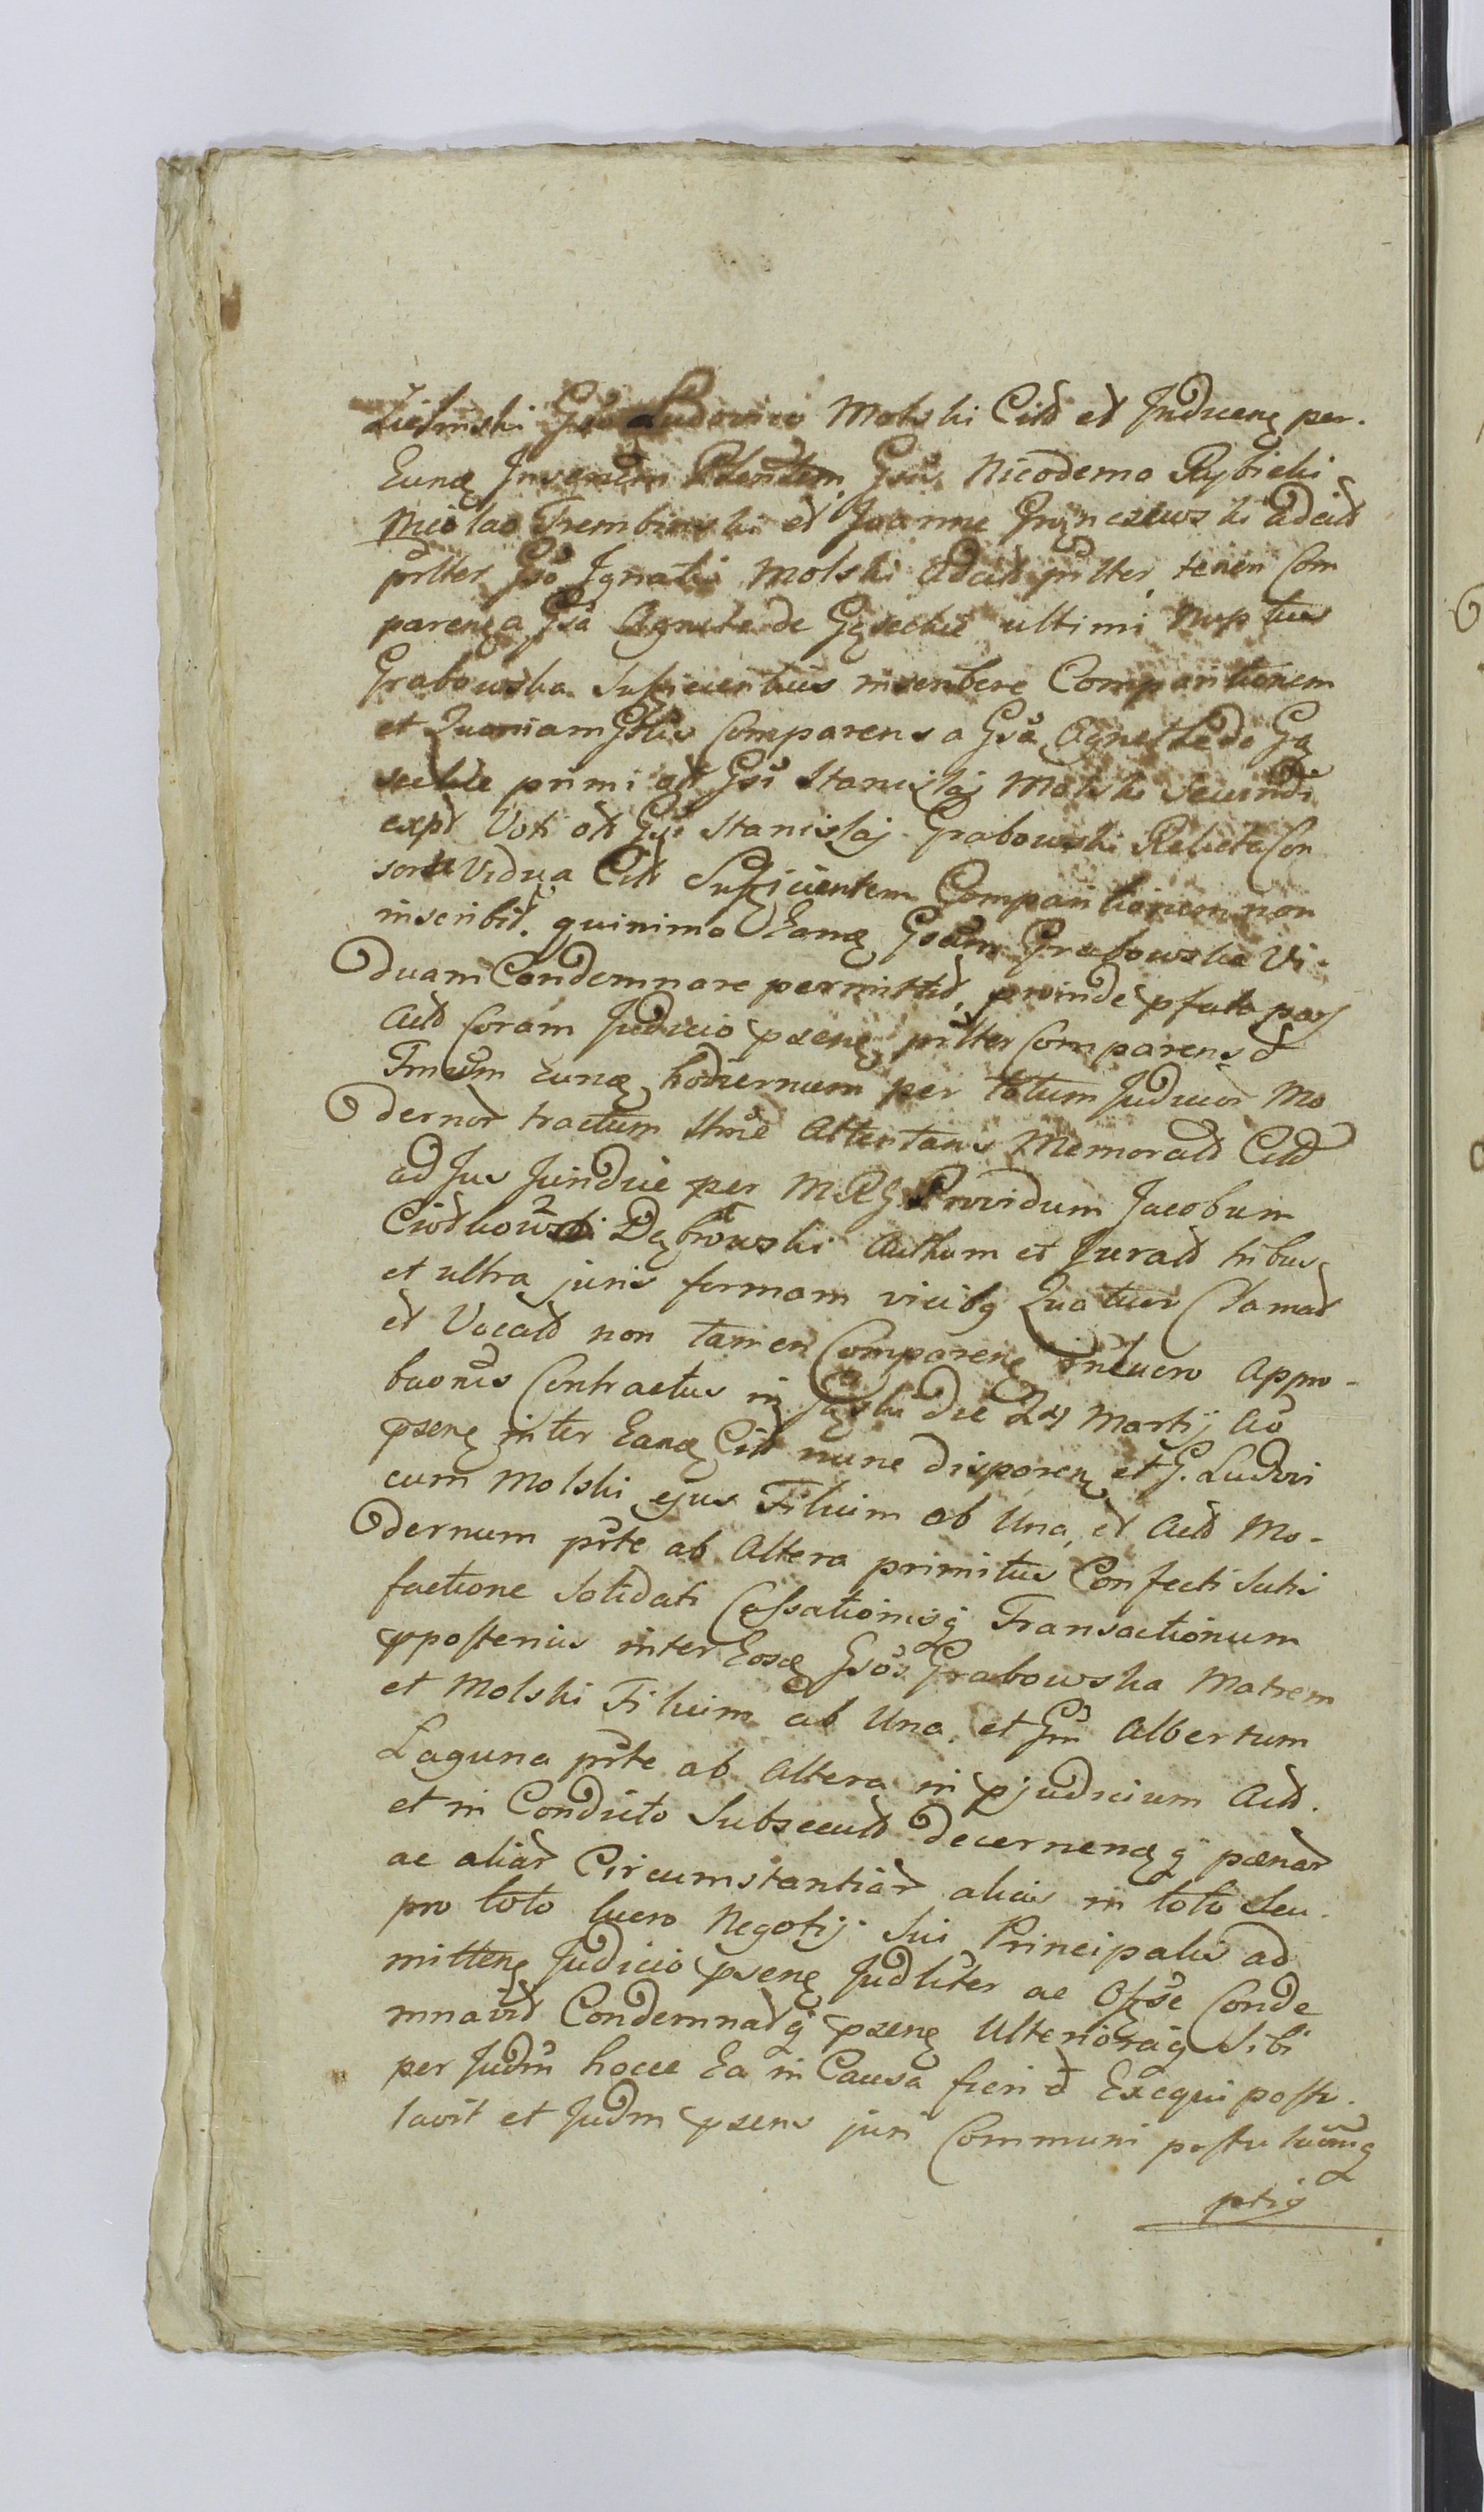 Zielinski Gso Ludovico Molski Citd et Inducen per.
Eund Inveniem Ptentem, Gsis Nicodemo Rybicki
Nicolao Trembinski et Joanne Grynczewski adcitd
prlter Gso Ignatio Molski adcitd prlter, tenen Com
paren a Gsa Agnete de Gąseckie ultimi Nuptus
Grabowska Sufficientius inscribere Comparitionem
et Quoniam Comparens a Gsa Agnethe de Gą
seckie primi ott Gsi Stanislai Molski Secundi
expd Voti ott Gsi Stanislaj Grabowski Relicta Con
sorte Vidua Citd Sufficientem Comparitionem non
inscribit. quinimo Eand Gsam Grabowska Vi-
duam Condemnare permittid, proinde pfata pars
Actd Coram Judicio psen prlter Comparens et
Tmum Eund hodiernum per totum Judicior Mo
dernor tractum Attentans Memoratd Citd
ad Jus Juridice per M.R.G. Providum Jacobum
Ciotkowski Dąbrowski Actum et Juratd tribus
et ultra juris formam vicibq Quatuor Clamatd
et Vocatd non tamen Comparen in lucro Appro-
baonis Contractus in die 24 Martij Ao
psen inter Eand Citd nunc disparen et G. Ludovi
cum Molski ejus Filium ab Una, et Actd Mo-
dernum prte ab Altera primitus Confecti Satis
factione Solidati Cassationisq Transactionum
pposterius inter Eosd Gsos Grabowska Matrem
et Molski Filium ab Una, et Gm Albertum
Laguna prte ab Altera in pjudicium Actd.
et in Condicto Subsecutd decernendq pænar
ac aliar Circumstantiar alias in toto Seu
pro toto lucro Negotij Sui Principalis ad
mitten Judicio psen Judliter ac Offse Conde
mnavit Condemnatq psen Ulterioraq Sibi
per Judm hocce Ea in Causa fieri et Exequi postu
lavit et Judm psens juri Communi postulaonq
ptis